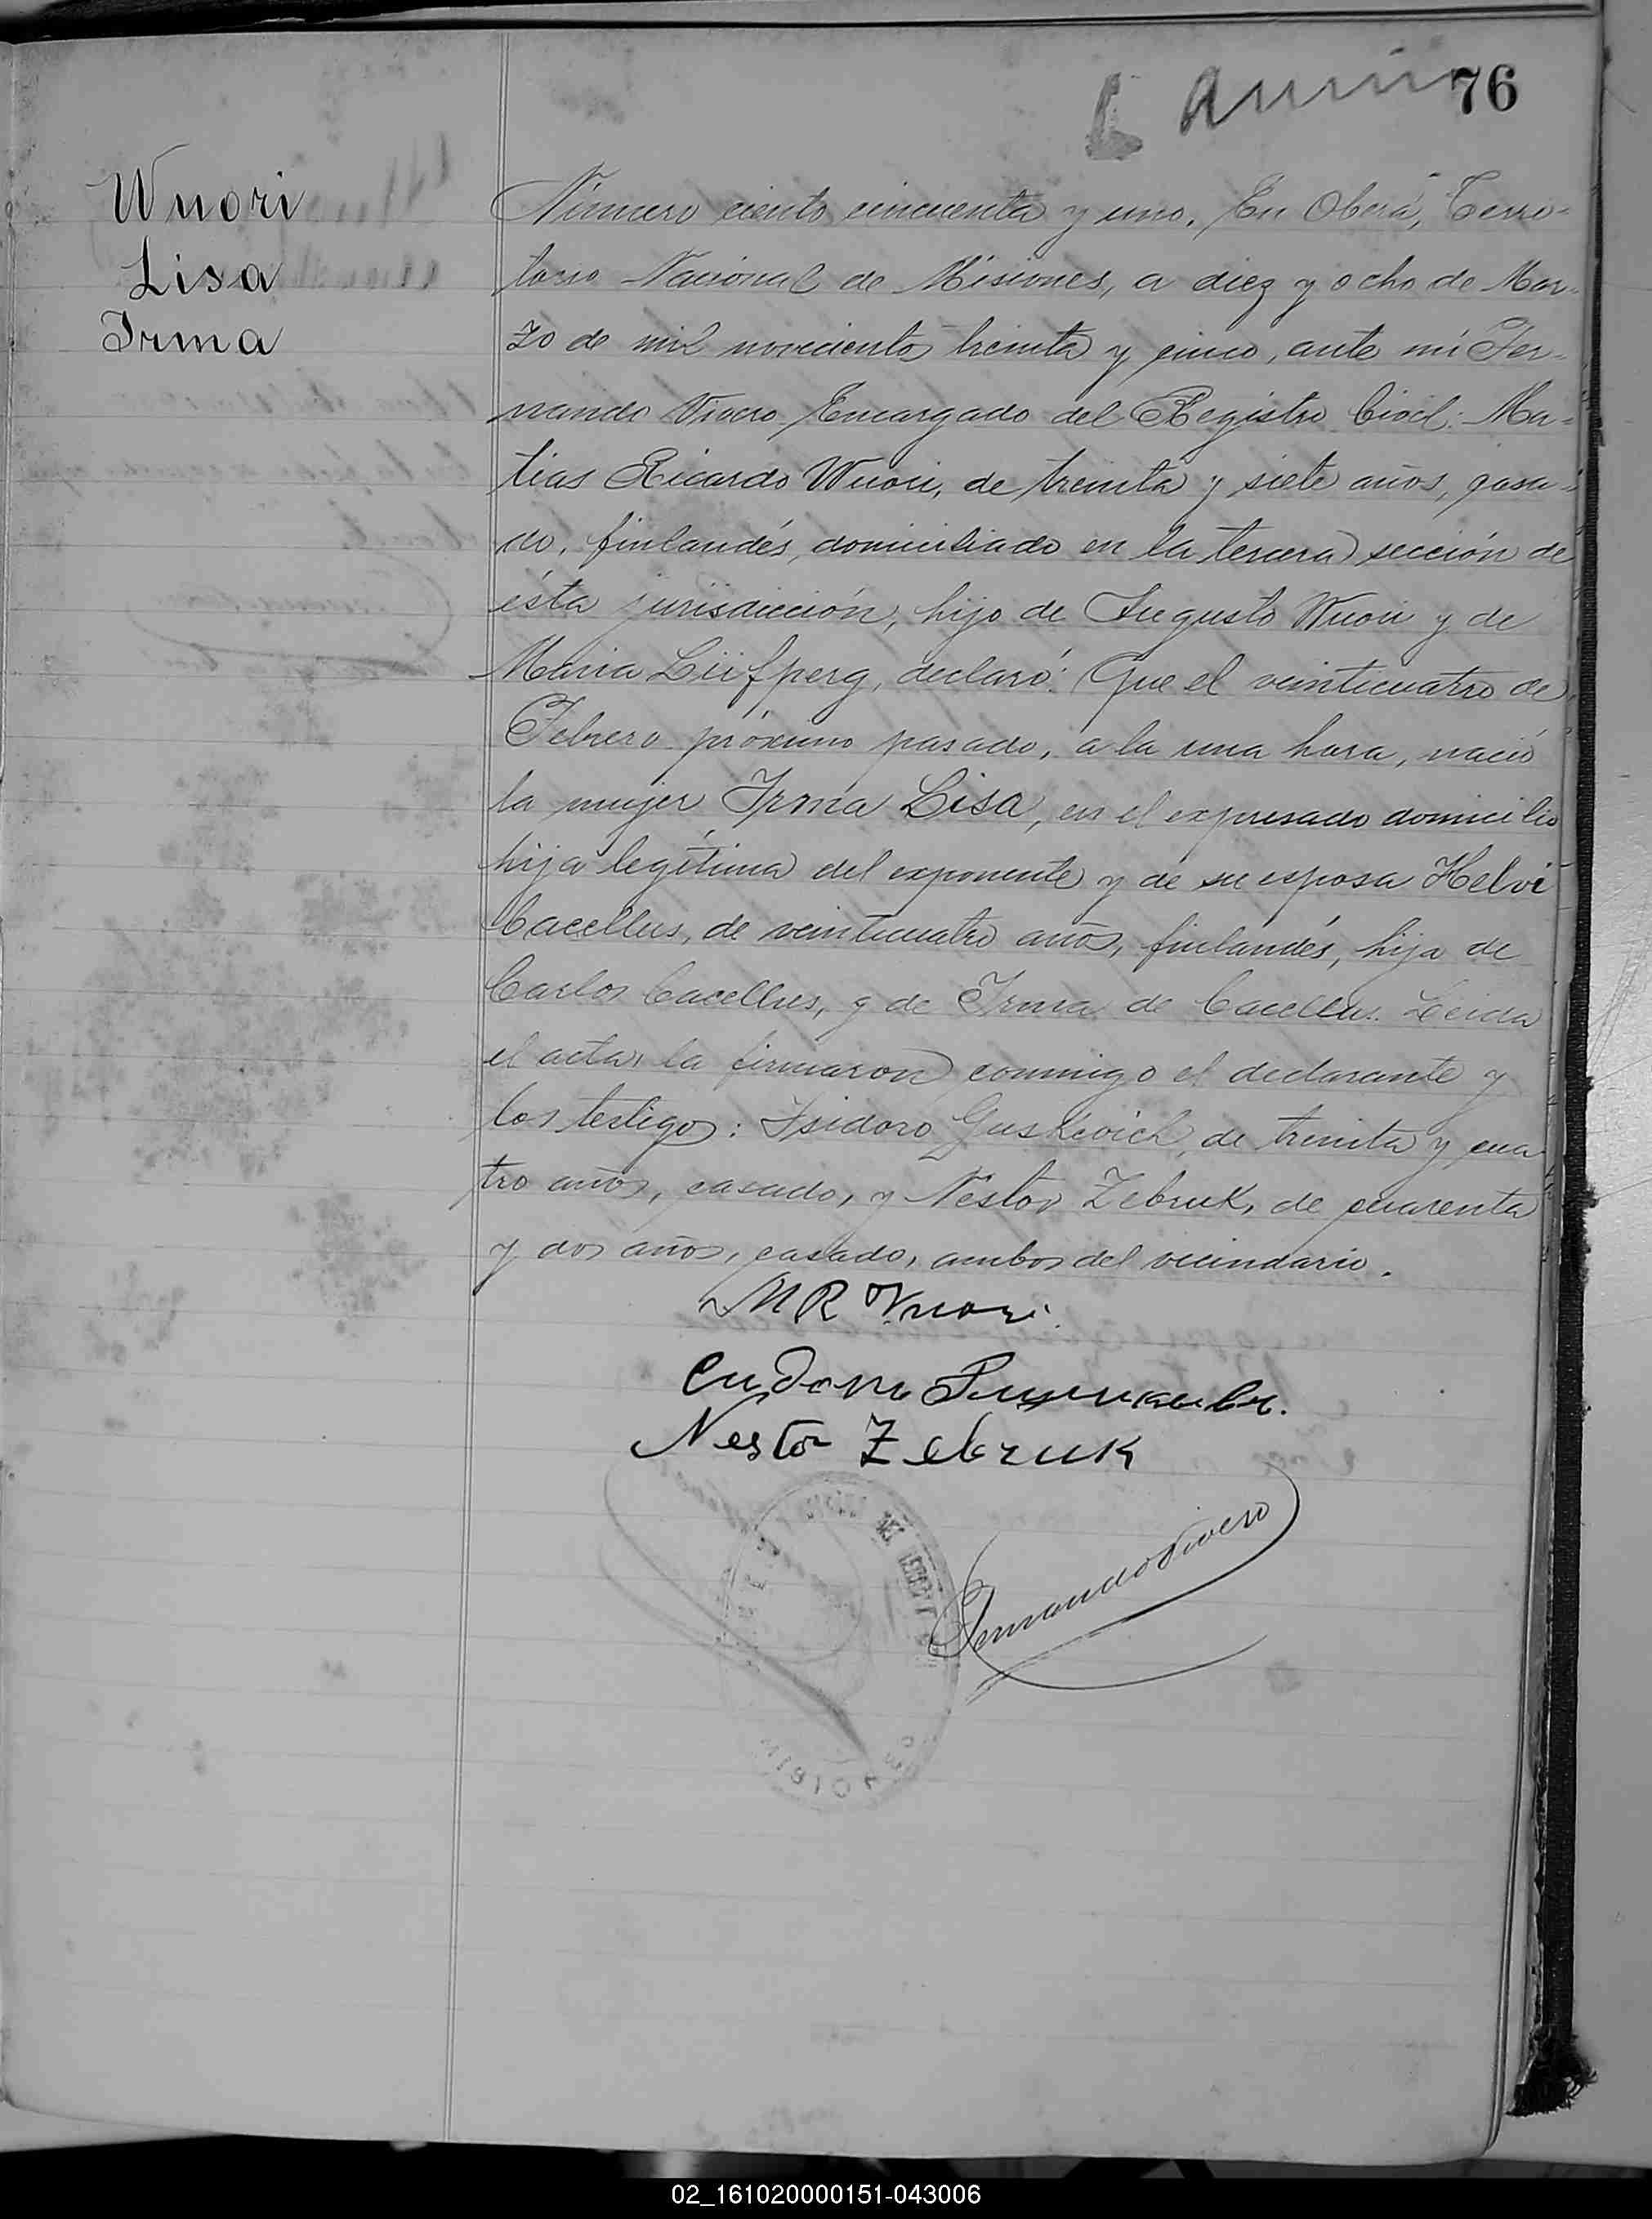 76
Wuori
Lisa
Irma
Número ciento cincuenta y uno. En Oberá, Terri-
torio Nacional de Misiones, a diez y ocho de Mar-
zo de mil novecientos treinta y cinco, ante mí Fer-
nando Vivero Encargado del Registro Civil: Ma-
tias Ricardo Wuori, de treinta y siete años, casa-
do, finlandés, domiciliado en la tercera sección de
ésta jurisdicción, hijo de Augusto Wuori y de
Maria Liifperg, declaró: Que el veinticuatro de
Febrero próximo pasado, a la una hora, nació
la mujer Irma Lisa, en el expresado domicilio
hija legítima del exponente y de su esposa Helvi
Cacellus, de veinticuatro años, finlandés, hija de
Carlos Cacellus, y de Irma de Cacellus. Leida
el acta, la firmaron conmigo el declarante y
los testigos: Isidoro Guskevich, de treinta y cua
tro años, casado, y Néstor Zebruk, de cuarenta
y dos años, casado, ambos del vecindario.
M R Vuori.
Nestor Zebruk
Fernando Vivero
02_161020000151-043006